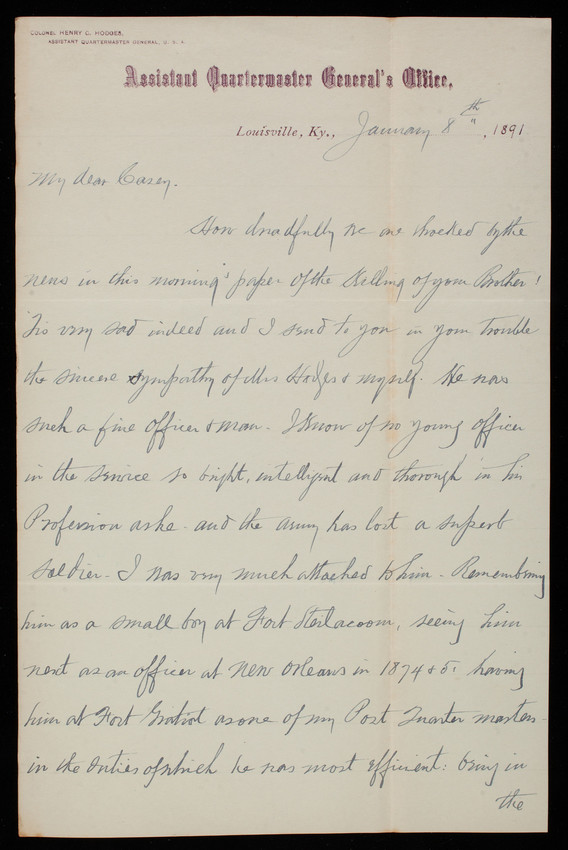 COLONEL HENRY C. HODGES,
ASSISTANT QUARTERMASTER GENERAL, U. S. A.
Assistant Quartermaster General's Office,
Louisville, Ky., January 8th, 1891
My dear Casey.
How dreadfully we are shocked by the
news in this morning's paper of the killing of your Brother!
Tis very sad indeed and I send to you in your trouble
the sincere sympathy of Mrs Hodges & myself. He was
such a fine officer & man. I know of no young officer
in the service so bright, intelligent and thorough in his
Profession as he. and the army has lost a superb
soldier. I was very much attached to him. Remembering
him as a small boy at Fort Steilacoom, seeing him
next as an officer at New Orleans in 1874 & 5. having
him at Fort Gratiot as one of my Post Quarter masters-
in the duties of which he was most efficient: being in
the